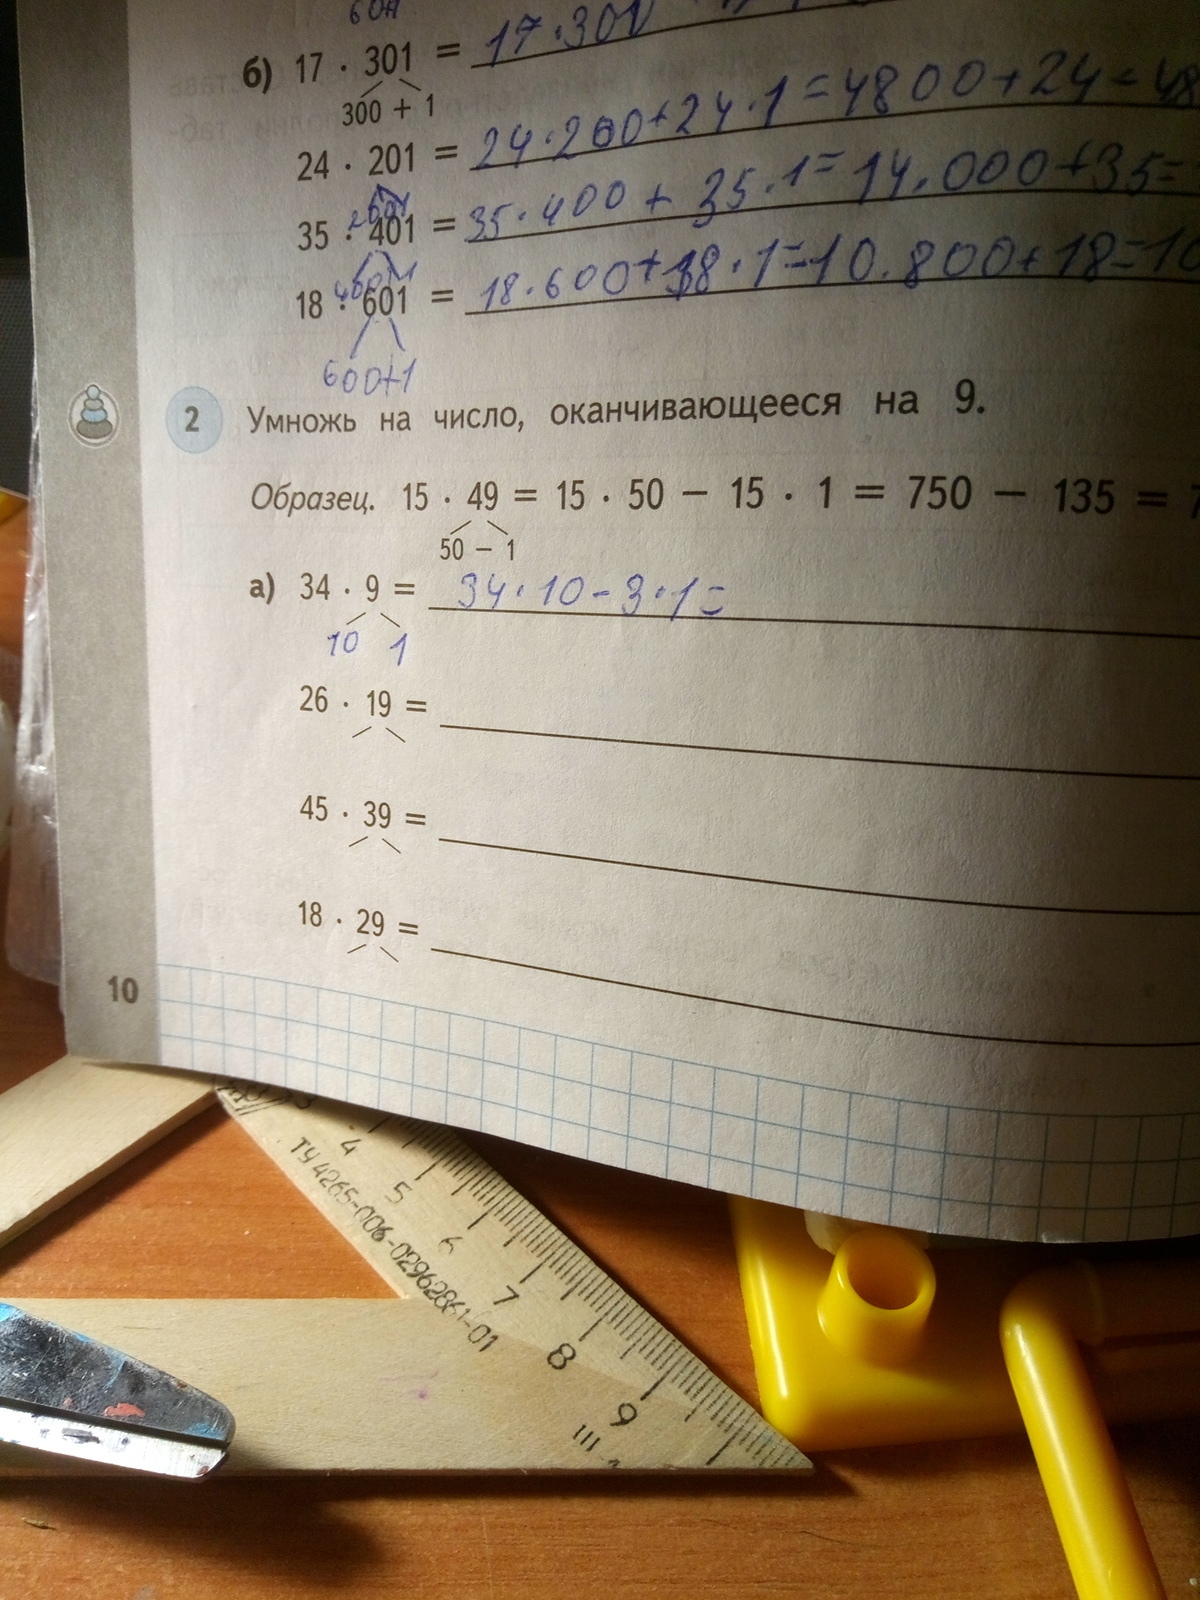 б) 17 · 301 = 17·301
300 + 1
24 · 201 = 24·200+24·1=4800+24=48
35 · 401 = 35·400 + 35·1=14.000+35=
18 · 601 = 18·600+18·1=10.800+18=10
600+1
2 Умножь на число, оканчивающееся на 9.
Образец. 15 · 49 = 15 · 50 − 15 · 1 = 750 − 135 =
50 − 1
а) 34 · 9 = 34·10-3·1=
10 1
26 · 19 =
45 · 39 =
18 · 29 =
10
4 5 6 7 8 9
ТУ 4265-006-02962861-01